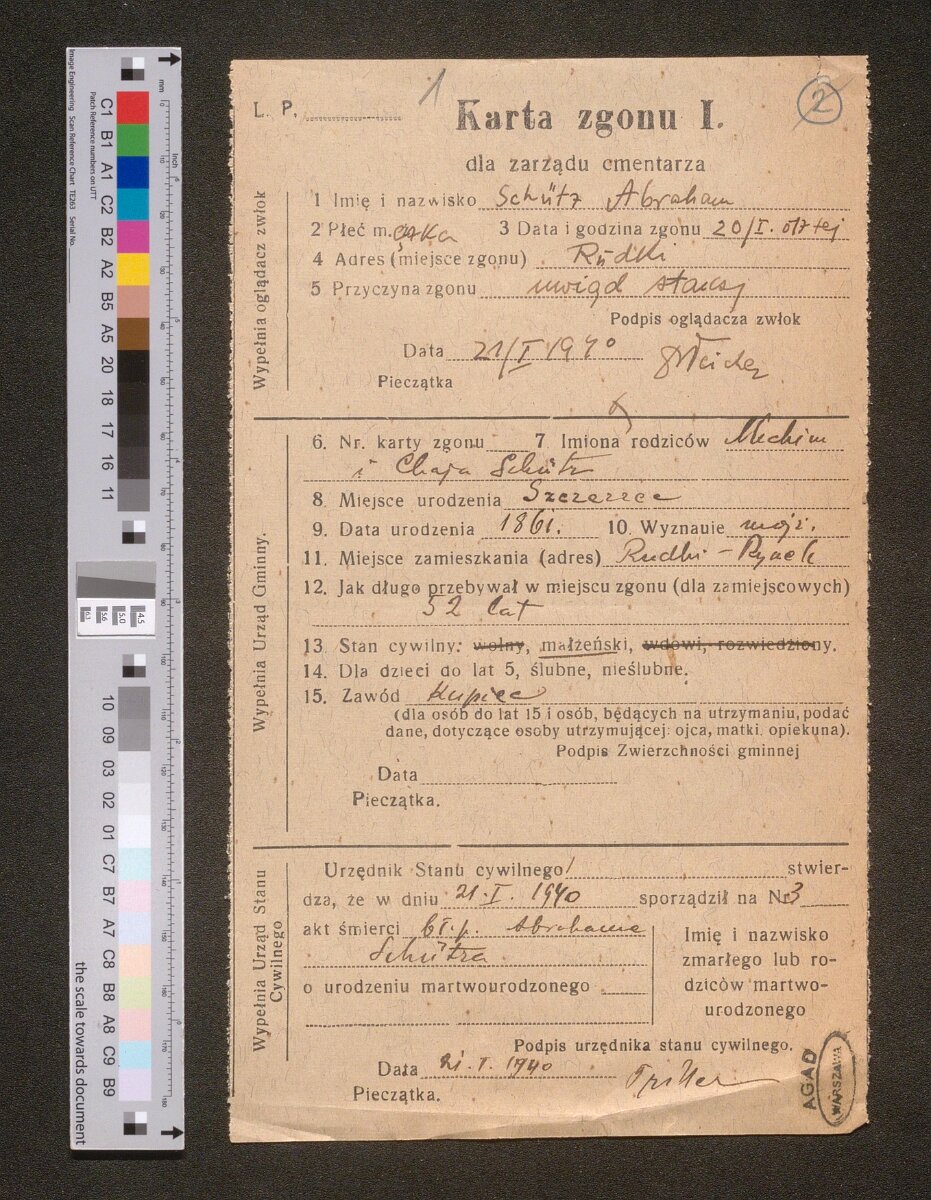 L. P. 1 2
Karta zgonu I.
dla zarządu cmentarza
Wypełnia oglądacz zwłok
1 Imię i nazwisko Schütz Abraham
2 Płeć m. 3 Data i godzina zgonu 20/I.
4 Adres (miejsce zgonu) Rudki
5 Przyczyna zgonu uwiąd starczy
Podpis oglądacza zwłok
Data 21/I 1940
Pieczątka
Wypełnia Urząd Gminny.
6. Nr. karty zgonu 7. Imiona rodziców
i Chaja Schütz
8. Miejsce urodzenia Szczerzec
9. Data urodzenia 1861. 10. Wyznanie mojż.
11. Miejsce zamieszkania (adres) Rudki - Rynek
12. Jak długo przebywał w miejscu zgonu (dla zamiejscowych)
52 lat
13. Stan cywilny: wolny, małżeński, wdowi, rozwiedziony.
14. Dla dzieci do lat 5, ślubne, nieślubne.
15. Zawód Kupiec
(dla osób do lat 15 i osób, będących na utrzymaniu, podać
dane, dotyczące osoby utrzymującej: ojca, matki. opiekuna).
Podpis Zwierzchności gminnej
Data
Pieczątka.
Wypełnia Urząd Stanu
Cywilnego
Urzędnik Stanu cywilnego stwier-
dza, że w dniu 21.I. 1940 sporządził na Nr 3
akt śmierci bł.p. Abrahama
Schütza
Imię i nazwisko
zmarłego lub ro-
dziców martwo-
urodzonego
o urodzeniu martwourodzonego
Podpis urzędnika stanu cywilnego.
Data 21.I.1940
Pieczątka.
AGAD
WARSZAWA
Image Engineering Scan Reference Chart TE263 Serial No.
Patch Reference numbers on UTT
mm
Inch
C1
B1
A1
C2
B2
A2
B5
A5
20
18
17
16
11
10
09
03
02
01
C7
B7
A7
C8
B8
A8
C9
B9
the scale towards document